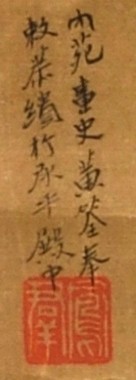 內苑畫史黃筌奉
敕恭繪於承平殿中